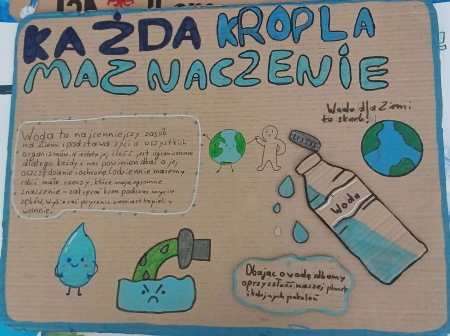 KAŻDA KROPLA
MA ZNACZENIE
Woda dla Ziemi
to skarb!
Woda to najcenniejszy zasób
na Ziemi i podstawa życia wszystkich
organizmów. Niestety jej ilość jest ograniczona
dlatego każdy z nas powinien dbać o jej
oszczędzanie i ochronę. Codziennie możemy
robić małe rzeczy, które mają ogromne
znaczenie - zakręcać kran podczas mycia
zębów, wybierać prysznic zamiast kąpieli w
wannie.
Woda
Dbając o wodę dbamy
o przyszłość naszej planety
i kolejnych pokoleń